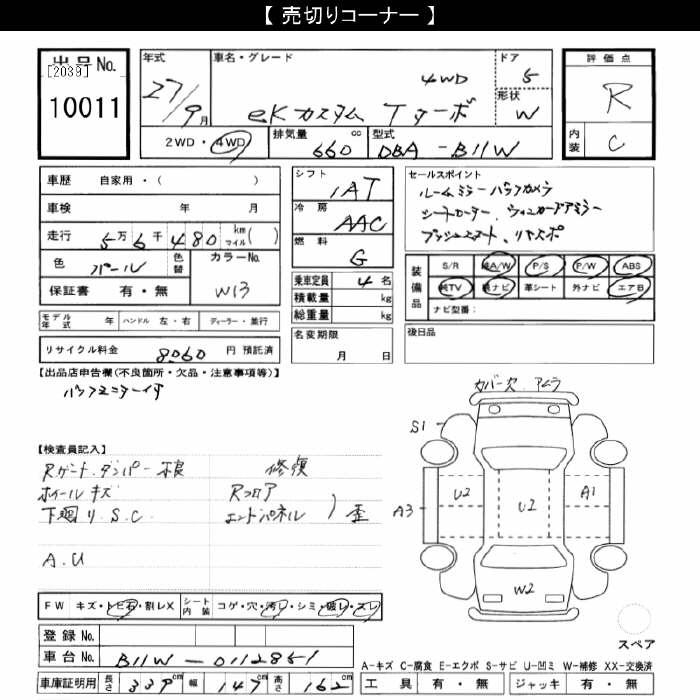 【 売切りコーナー 】
出品No. [2039] 10011
年式 27/9月
車名・グレード 4WD eKカスタム Tターボ
ドア 5
形状 W
評価点 R
内装 C
2WD・4WD
排気量 660 cc
型式 DBA-B11W
車歴 自家用・( )
車検 年 月
走行 5万6千480 km マイル( )
色 パール
色替
カラーNo. W13
保証書 有・無
シフト IAT
冷房 AAC
燃料 G
乗車定員 4名
積載量 kg
総重量 kg
セールスポイント
ルームミラーバックカメラ
シートヒーター、ウィンカードアミラー
プッシュスタート、リヤスポ
装備品 S/R 純A/W P/S P/W ABS
純TV 純ナビ 革シート 外ナビ エアB
ナビ型番:
モデル年式 年 ハンドル 左・右 ディーラー・並行
名変期限 月 日
後日品
リサイクル料金 8060 円 預託済
【出品店申告欄(不良箇所・欠品・注意事項等)】
カバー欠 アムラ
S1
【検査員記入】
Rゲートダンパー不良 修復
ホイールキズ Rフロア
下廻り S.C エンドパネル ) 歪
A.U
A3 U2 U2 A1
W2
FW キズ・トビ石・割レX シート内装 コゲ・穴・汚レ・シミ・破レ・スレ
登録No.
車台No. B11W-0112851
車庫証明用 長さ 339cm 幅 147cm 高さ 162cm
スペア
A-キズ C-腐食 E-エクボ S-サビ U-凹ミ W-補修 XX-交換済
工具 有・無 ジャッキ 有・無